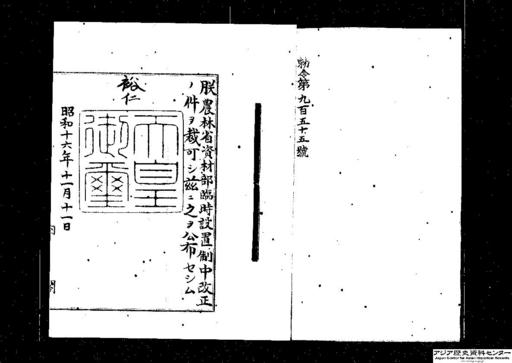 勅令第九百五十五號
朕農林省資材部臨時設置制中改正
ノ件ヲ裁可シ茲ニ之ヲ公布セシム
裕仁
天皇
御璽
昭和十六年十一月十一日
内閣
アジア歴史資料センター
Japan Center for Asian Historical Records